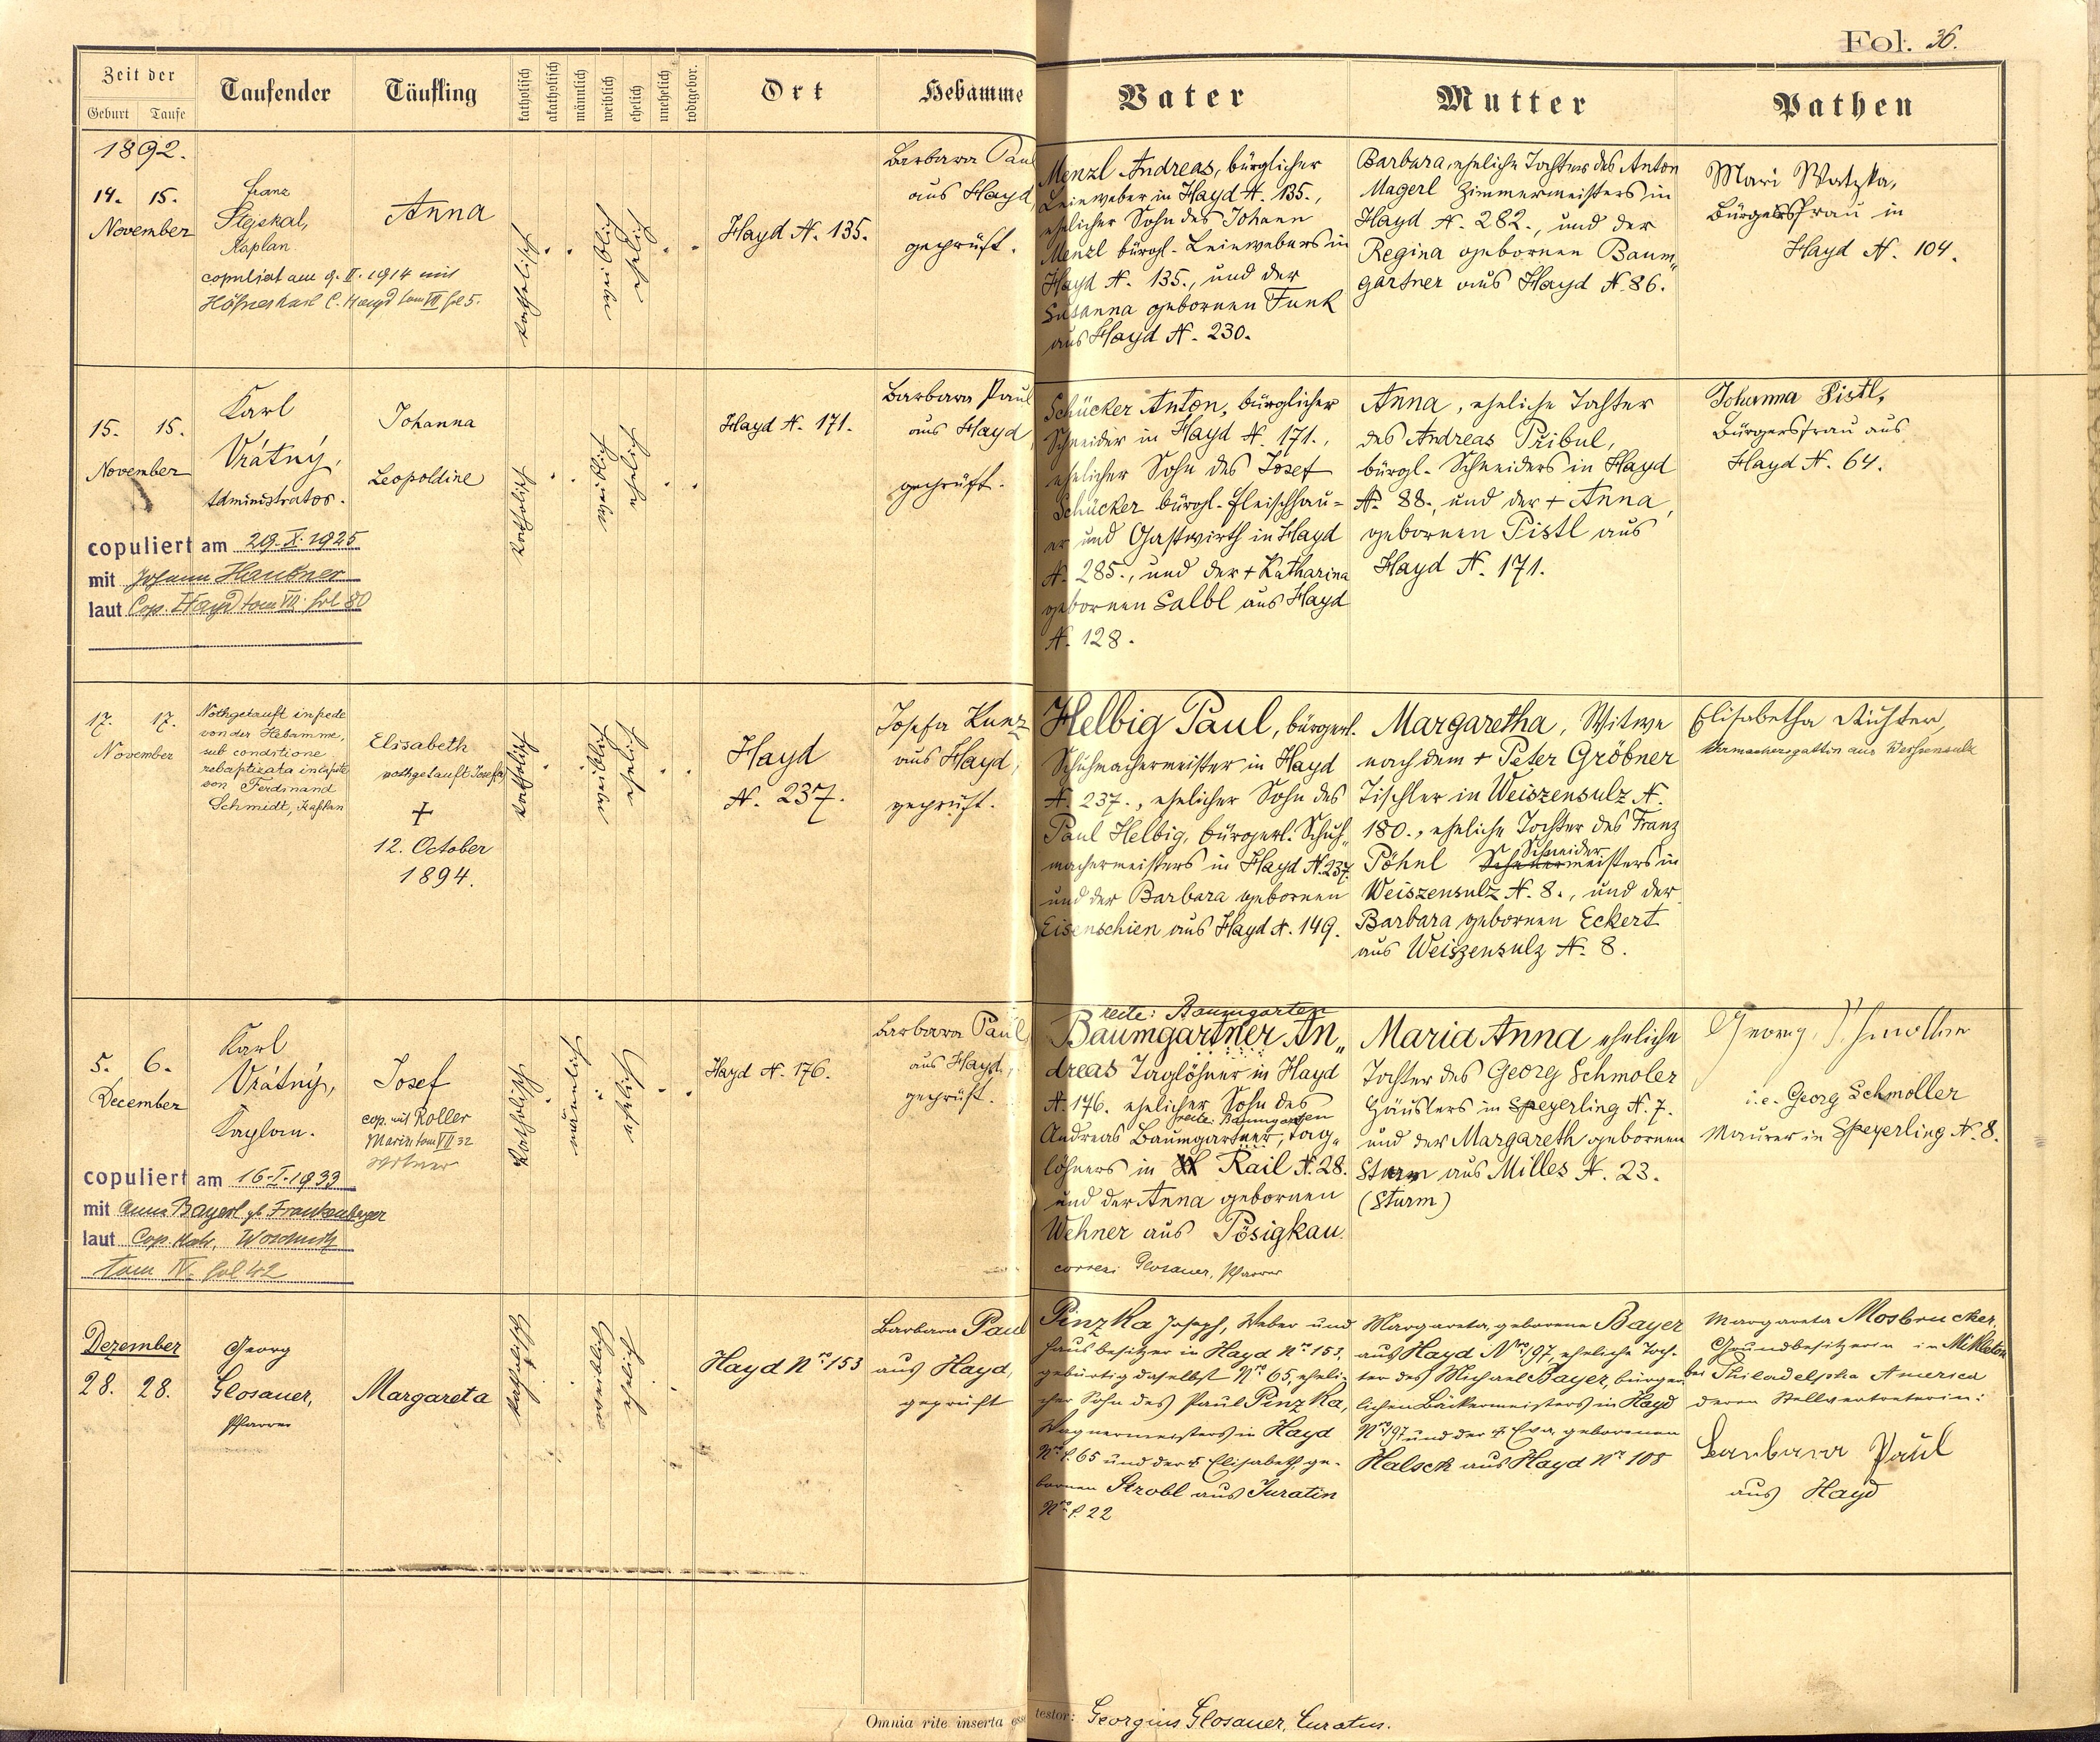 Fol. 36.
Zeit der
Geburt Taufe
Taufender
Täufling
katholisch
akatholisch
männlich
weiblich
ehelich
unehelich
todtgebor.
Ort
Hebamme
Vater
Mutter
Pathen
1892.
14. 15.
November
Franz
Stejskal,
Kaplan.
copuliert am 9. II. 1914 mit
Höfner Karl C. Hayd tom VII fol 5.
Anna
katholisch
weiblich
ehelich
Hayd N. 135.
Barbara Paul
aus Hayd,
geprüft.
Menzl Andreas, bürglicher
Leinweber in Hayd N. 135.,
ehelicher Sohn des Johann
Menzl bürgl. Leinwebers in
Hayd N. 135., und der
Susanna gebornen Funk
aus Hayd N. 230.
Barbara, eheliche Tochter des Anton
Magerl Zimmermeisters in
Hayd N. 282., und der
Regina gebornen Baum„
gartner aus Hayd N. 86.
Mari Watzka,
Bürgersfrau in
Hayd N. 104.
15. 15.
November
Karl
Vrátný,
Administrator.
copuliert am 29. X. 1925
mit Johann Haubner
laut Cop. Hayd tom VII fol 80
Johanna
Leopoldine
katholisch
weiblich
ehelich
Hayd N. 171.
Barbara Paul
aus Hayd,
geprüft.
Schücker Anton, bürglicher
Schneider in Hayd N. 171.,
ehelicher Sohn des Josef
Schücker bürgl. Fleischhau=
er und Gastwirth in Hayd
N. 285., und der + Katharina
gebornen Salbl aus Hayd
N. 128.
Anna, eheliche Tochter
des Andreas Pribul,
bürgl. Schneiders in Hayd
N. 88., und der + Anna,
gebornen Pistl aus
Hayd N. 171.
Johanna Pistl,
Bürgersfrau aus
Hayd N. 64.
17. 17.
November
Nothgetauft in pede
von der Hebamme,
sub conditione
rebaptizata in capite
von Ferdinand
Schmidt, Kaplan
Elisabeth
nothgetauft Josefa
+
12. October
1894.
katholisch
weiblich
ehelich
Hayd
N. 237.
Josefa Kunz
aus Hayd,
geprüft.
Helbig Paul, bürgerl.
Schuhmachermeister in Hayd
N. 237., ehelicher Sohn des
Paul Helbig, bürgerl. Schuh„
machermeisters in Hayd N. 237.
und der Barbara gebornen
Eisenschien aus Hayd N. 149.
Margaretha, Witwe
nach dem + Peter Gröbner
Tischler in Weiszensulz N.
180., eheliche Tochter des Franz
Schneider
Pöhnl meisters in
Weiszensulz N. 8., und der
Barbara, gebornen Eckert
aus Weiszensulz N. 8.
Elisabetha Richter,
aus Weißensulz
5. 6.
December
Karl
Vrátný,
Kaplan.
copuliert am 16. I. 1933
mit Anna Bayerl gb. Frankenberger
laut Cop. Matr. Woschnitz
tom IV. fol 42
Josef
cop. mit Roller
Marie tom VII 32
Witwer
katholisch
männlich
ehelich
Hayd N. 176.
Barbara Paul,
aus Hayd,
geprüft.
recte: Baumgarten
Baumgartner An„
dreas Taglöhner in Hayd
N. 176. ehelicher Sohn des
recte: Baumgarten
Andreas Baumgartner, Tag„
löhners in Rail N. 28.
und der Anna gebornen
Wehner aus Pösigkau.
correxi Glosauer, Pfarrer
Maria Anna eheliche
Tochter des Georg Schmoler
Häuslers in Speyerling N. 7.
und der Margareth gebornen
Sturm aus Milles N. 23.
(Sturm)
Georg Schmoller
i. e. Georg Schmoller
Maurer in Speyerling N. 8.
Dezember
28. 28.
Georg
Glosauer,
Pfarrer
Margareta
katholisch
weiblich
ehelich
Hayd Nro 153
Barbara Paul
aus Hayd,
geprüft
Pinzka Joseph, Weber und
Hausbesitzer in Hayd Nro 153,
gebürtig daselbst Nro 65, eheli-
cher Sohn des Paul Pinzka,
Wagnermeisters in Hayd
Nro C. 65 und der + Elisabeth, ge-
bornen Strobl aus Juratin
Nro C. 22
Margareta, geborene Bayer
aus Hayd Nro 197, eheliche Toch-
ter des Michael Bayer, bürger-
lichen Bäckermeisters in Hayd
Nro 197 und der + Eva, geborenen
Halsch aus Hayd Nro 108
Margareta Mosbrucker,
Grundbesitzerin in Mikleton
bei Philadelphia America
deren Stellvertreterin:
Barbara Paul
aus Hayd
Omnia rite inserta esse testor: Georgius Glosauer, Curatus.